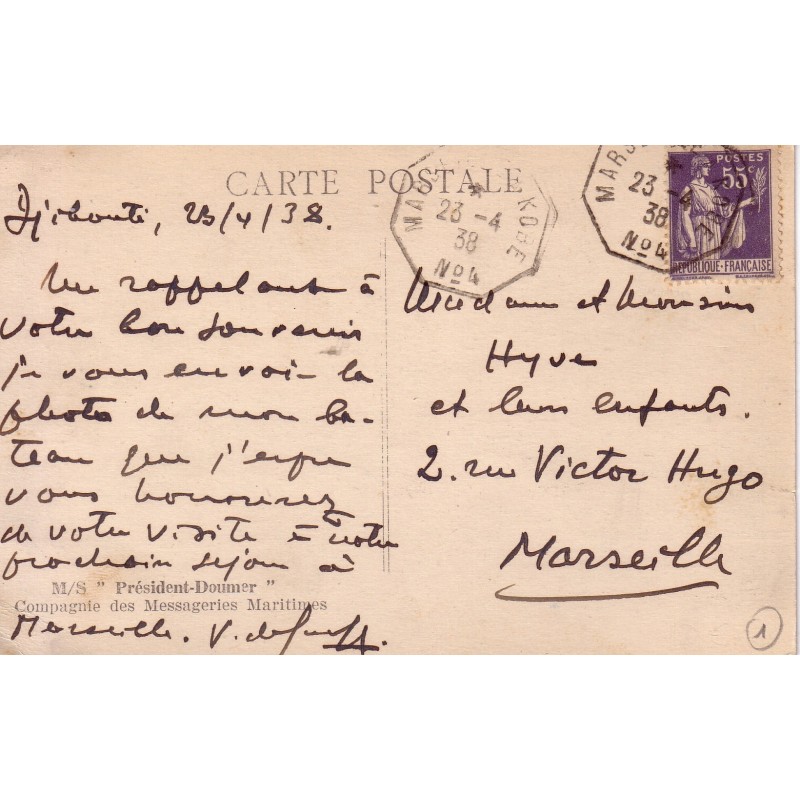 CARTE POSTALE
Djibouti, 23/4/38.
Me rappelant à
votre bon souvenir
je vous envoie la
photo de mon ba-
teau que j'espère
vous honorerez
de votre visite à notre
prochain séjour à
Marseille. V.
M/S " Président-Doumer "
Compagnie des Messageries Maritimes
MARS KOBE
23 -4
38
No4
MARS
23 -4
38
No4
POSTES
55c
RÉPUBLIQUE-FRANÇAISE
Madame et Monsieur
Hyve
et leurs enfants.
2. rue Victor Hugo
Marseille
1